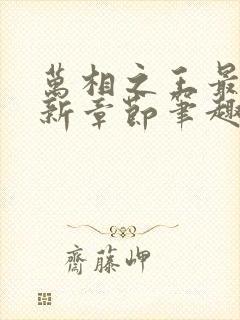 萬相之王最
新章節筆趣
齋藤岬